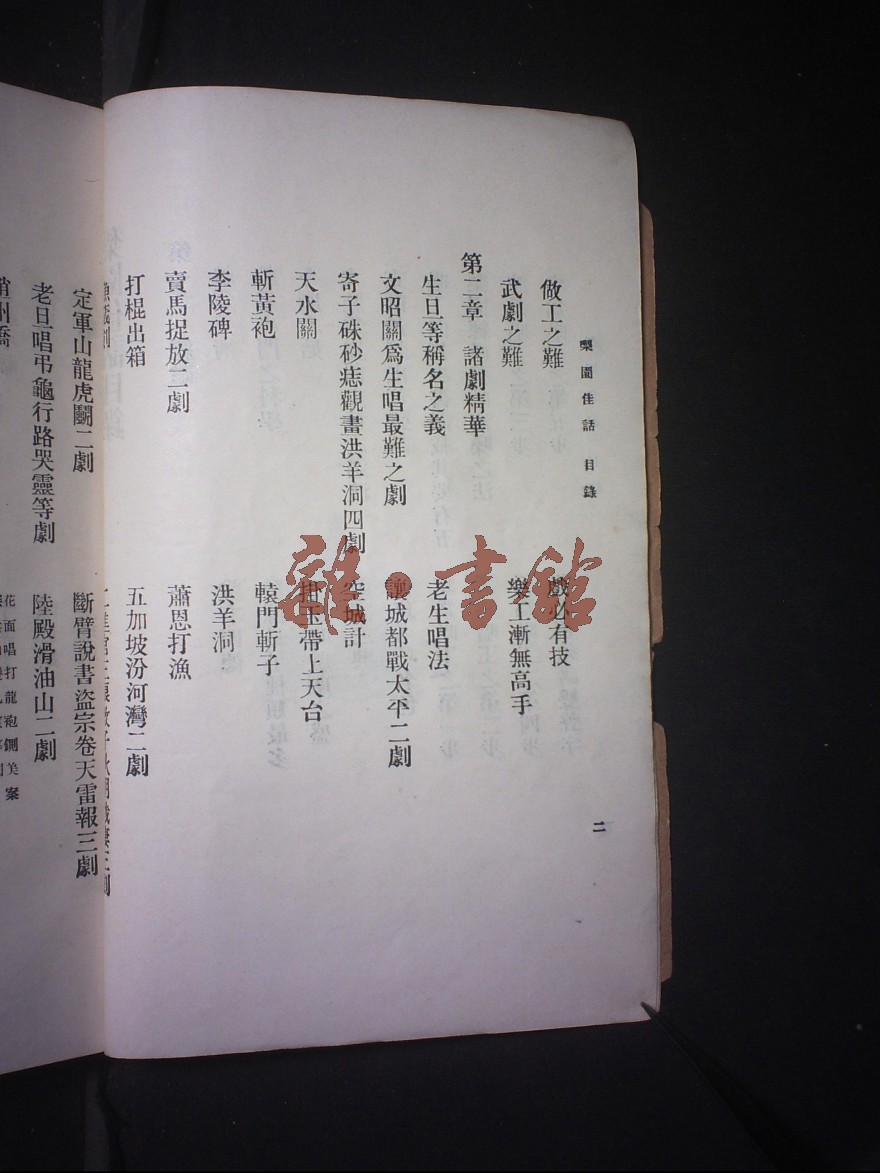 梨園佳話 目錄
二
做工之難 戲必有技
武劇之難 樂工漸無高手
第二章 諸劇精華
生旦等稱名之義 老生唱法
文昭關爲生唱最難之劇 讓城都戰太平二劇
寄子硃砂痣觀畫洪羊洞四劇 空城計
天水關 掛玉帶上天台
斬黃袍 轅門斬子
李陵碑 洪羊洞
賣馬捉放二劇 蕭恩打漁
打棍出箱 五加坡汾河灣二劇
定軍山龍虎鬭二劇 斷臂說書盜宗卷天雷報三劇
老旦唱弔龜行路哭靈等劇 陸殿滑油山二劇
州橋 花面唱打龍袍鍘美案
雜·書館